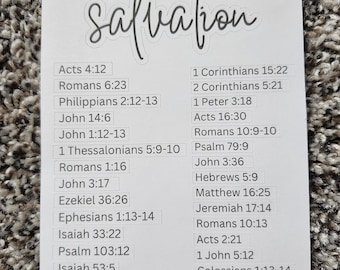 salvation
Acts 4:12
Romans 6:23
Philippians 2:12-13
John 14:6
John 1:12-13
1 Thessalonians 5:9-10
Romans 1:16
John 3:17
Ezekiel 36:26
Ephesians 1:13-14
Isaiah 33:22
Psalm 103:12
Isaiah 53:5
1 Corinthians 15:22
2 Corinthians 5:21
1 Peter 3:18
Acts 16:30
Romans 10:9-10
Psalm 79:9
John 3:36
Hebrews 5:9
Matthew 16:25
Jeremiah 17:14
Romans 10:13
Acts 2:21
1 John 5:12
Colossians 1:13-14